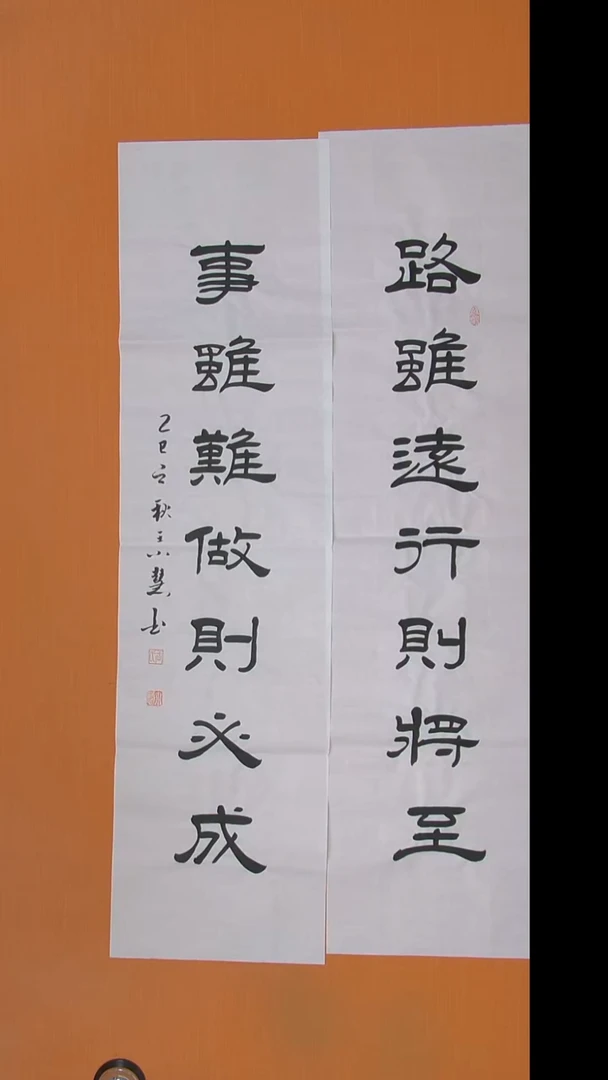 路雖遠行則將至
事雖難做則必成
乙巳之秋王小慧书